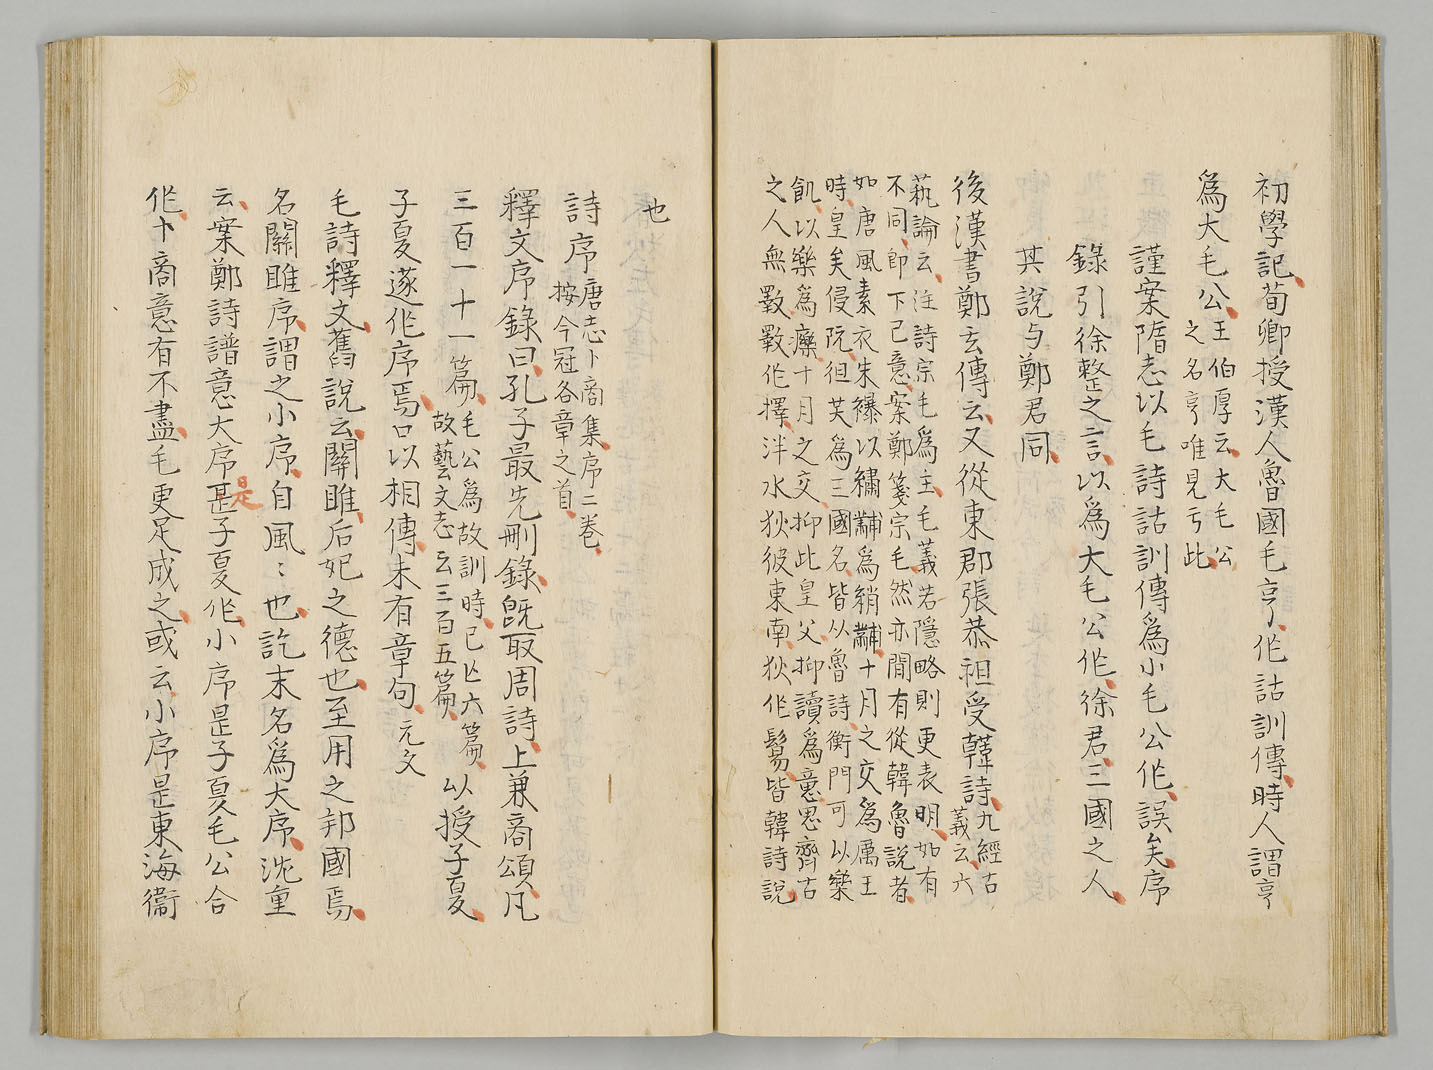 初學記荀卿授漢人魯國毛亨作詁訓傳時人謂亨
爲大毛公
王伯厚云大毛公
之名亨唯見于此
謹案隋志以毛詩詁訓傳爲小毛公作誤矣序
錄引徐整之言以爲大毛公作徐君三國之人
其說与鄭君同
後漢書鄭玄傳云又從東郡張恭祖受韓詩
九經古
義云六
藝論云注詩宗毛爲主毛義若隱略則更表明如有
不同即下己意案鄭箋宗毛然亦閒有從韓魯說者
如唐風素衣朱襮以繡黼爲綃黼十月之交爲厲王
時皇矣侵阮徂共爲三國名皆从魯詩衡門可以樂
飢以樂爲𤻲十月之交抑此皇父抑讀爲意思齊古
之人無斁斁作擇泮水狄彼東南狄作鬄皆韓詩說
也
詩序
唐志卜商集序二卷
按今冠各章之首
釋文序錄曰孔子最先刪錄既取周詩上兼商頌凡
三百一十一篇
毛公爲故訓時已亾六篇
故藝文志云三百五篇
以授子夏
子夏遂作序焉口以相傳未有章句
元文
毛詩釋文舊說云關雎后妃之德也至用之邦國焉
名關雎序謂之小序自風〻也訖末名爲大序沈重
云案鄭詩譜意大序是子夏作小序是子夏毛公合
是
作卜商意有不盡毛更足成之或云小序是東海衞